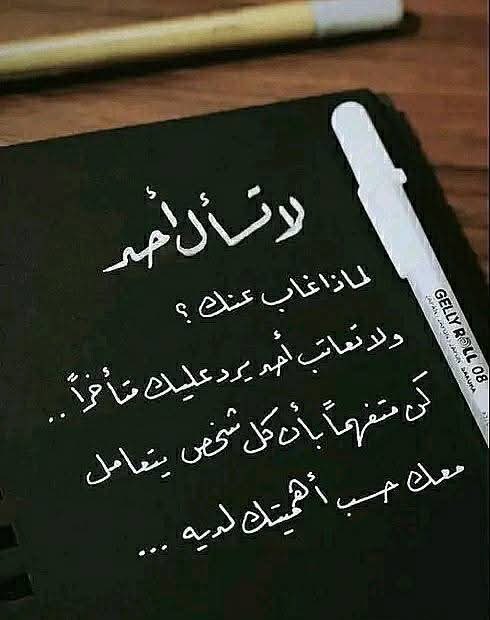 لا تسأل أحد
لماذا غاب عنك ؟
ولا تعاتب أحد يرد عليك متأخراً ..
كن متفهماً بأن كل شخص يتعامل
معك حسب أهميتك لديه ...
GELLY ROLL 08